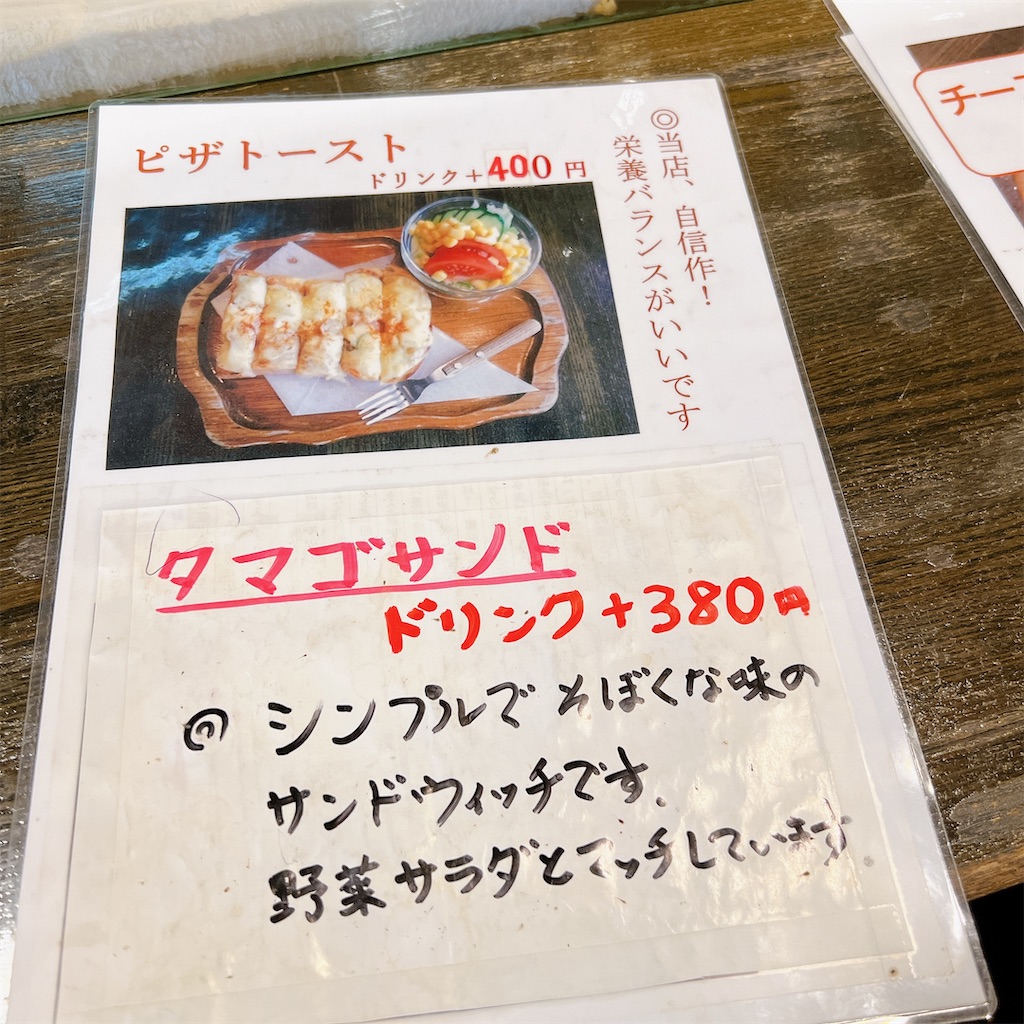 ピザトースト
ドリンク+400円
◎当店、自信作!
栄養バランスがいいです
タマゴサンド
ドリンク+380円
◎ シンプルでそぼくな味の
サンドウィッチです。
野菜サラダとマッチしています
チー